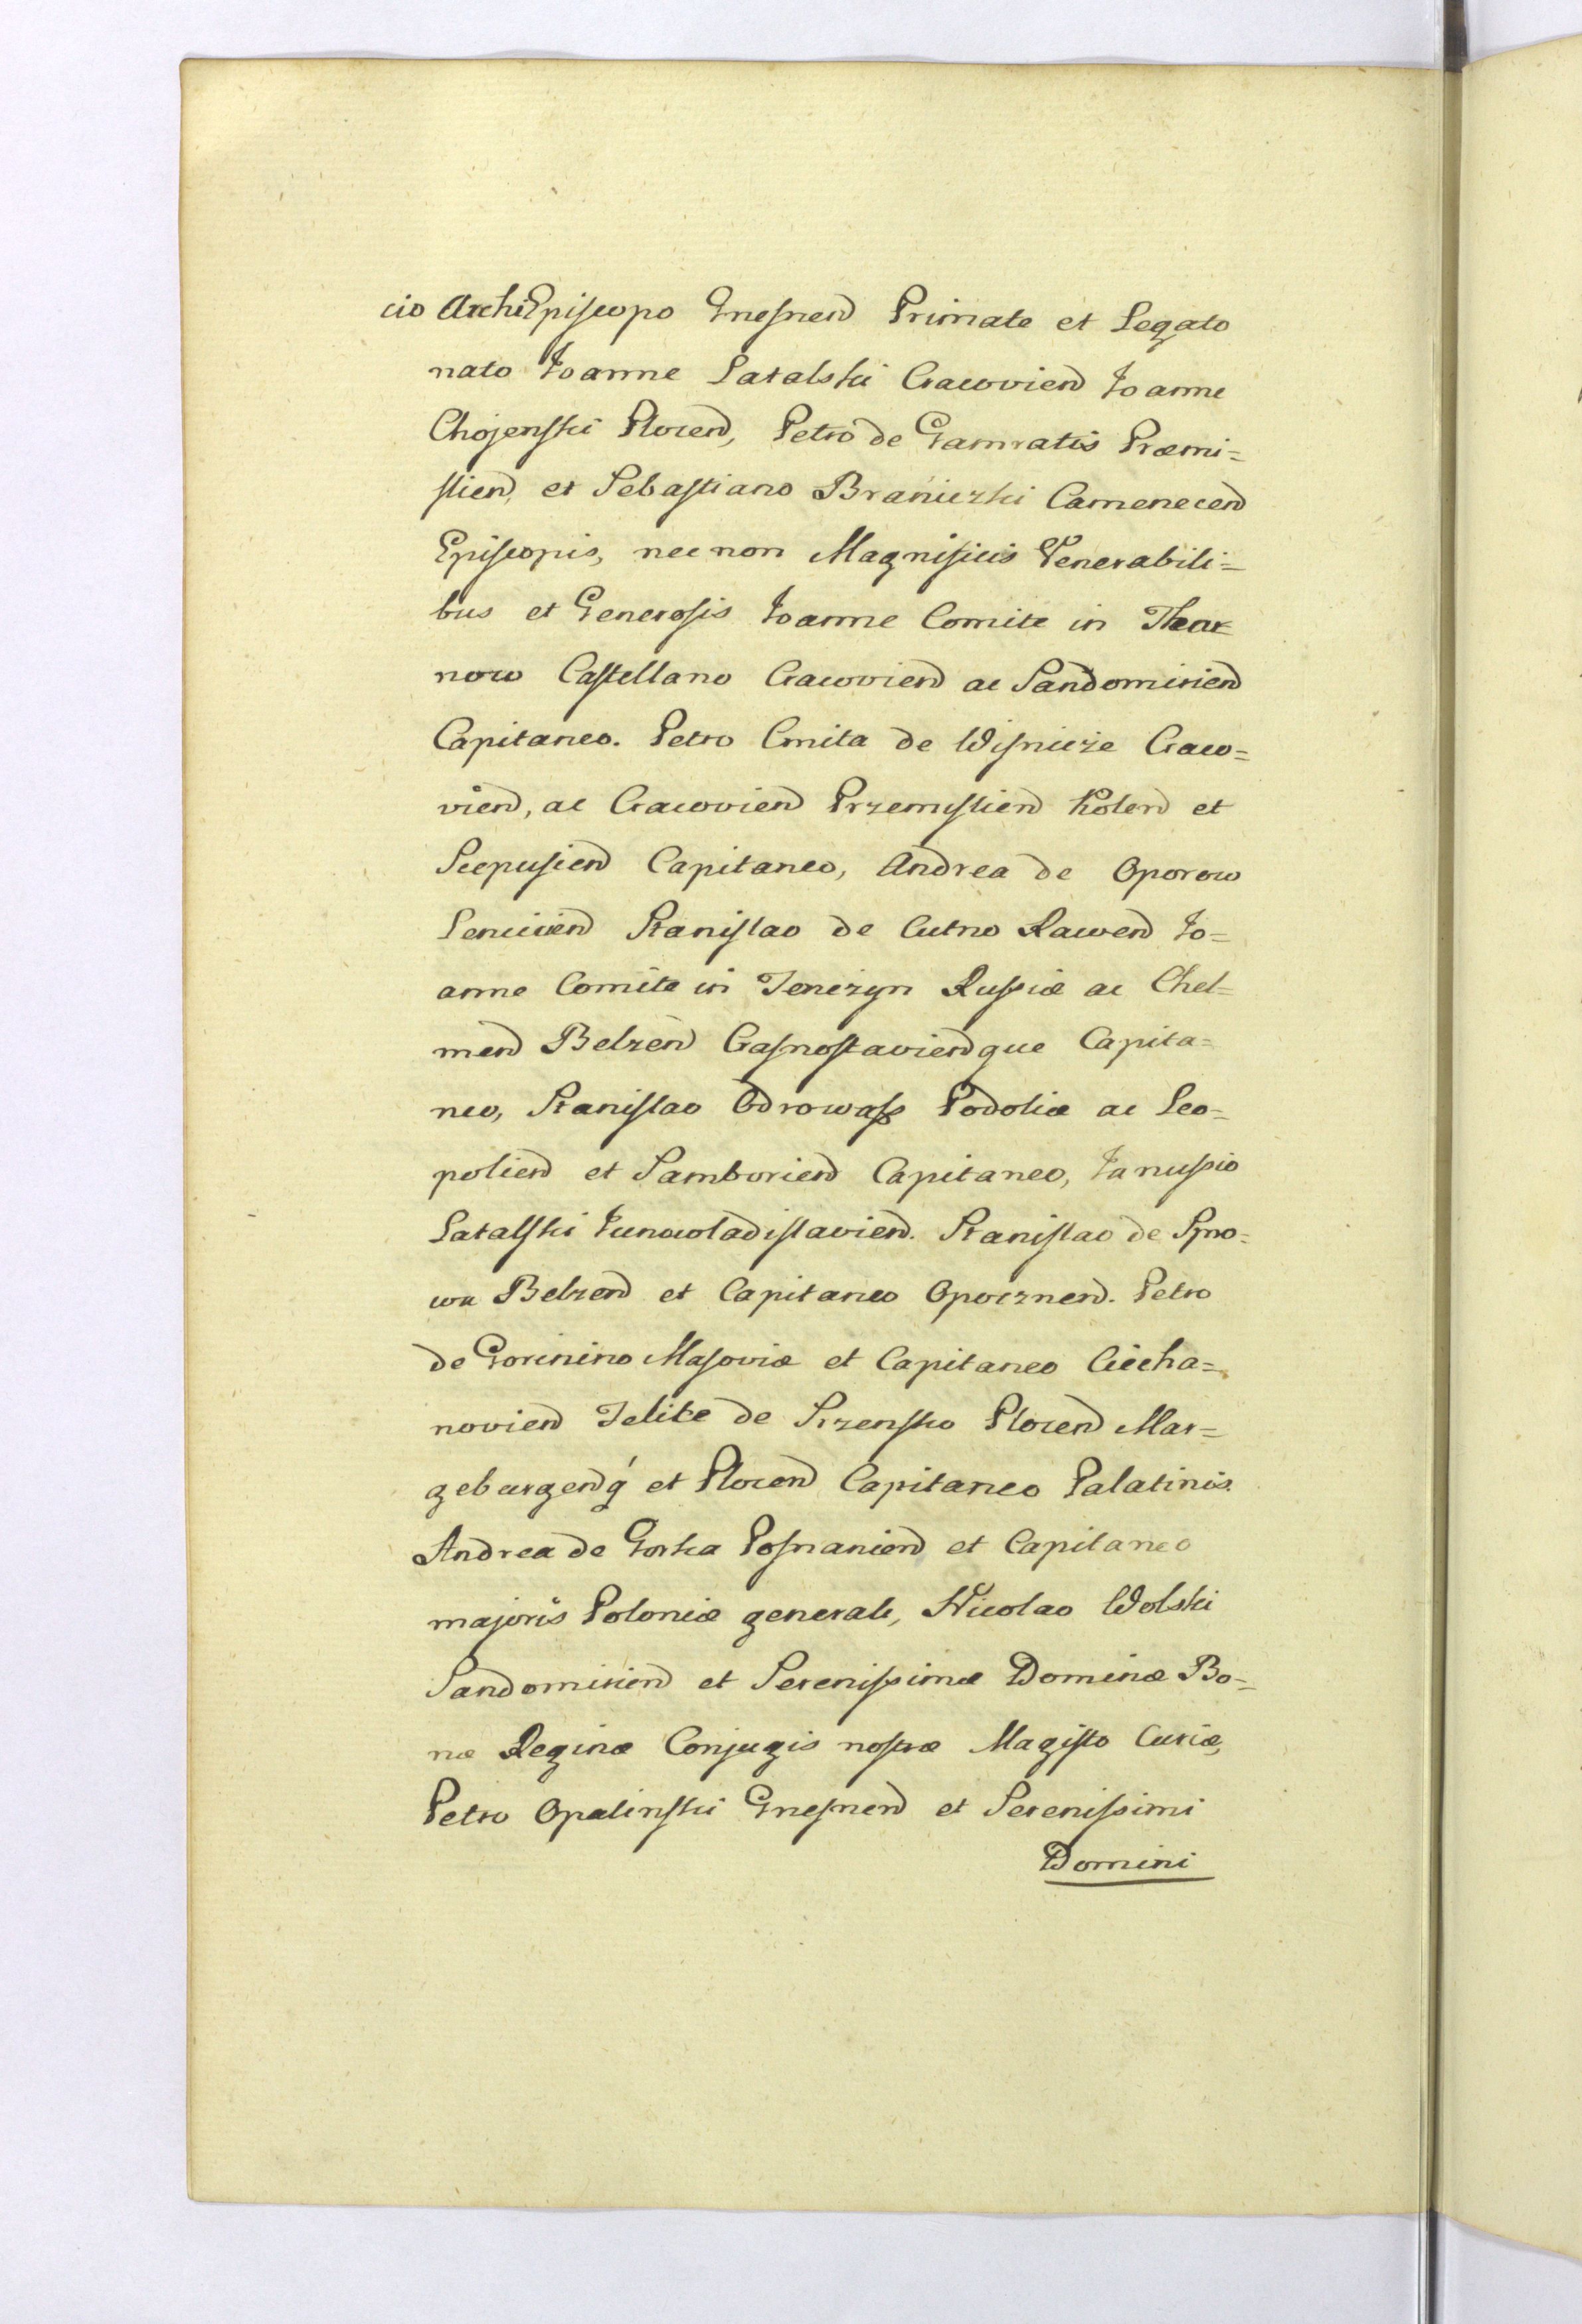 cio ArchiEpiscopo Gnesnen Primate et Legato
nato Joanne Latalski Cracovien Joanne
Chojenski Plocen, Petro de Gamratis Præmi=
slien, et Sebastiano Braniczki Camenecen
Episcopis, nec non Magnificis Venerabili=
bus et Generosis Joanne Comite in Thar
now Castellano Cracovien ac Sandomirien
Capitaneo. Petro Cmita de Wisnicze Craco=
vien, ac Cracovien Przemislien Kolen et
Scepusien Capitaneo, Andrea de Oporow
Lencicien Stanislao de Cutno Rawen Jo=
anne Comite in Tenczyn Russiæ ac Chel=
men Belzen Crasnostavienque Capita=
neo, Stanislao Odrowass Podoliæ ac Leo=
polien et Samborien Capitaneo, Janussio
Latalski Junowladislavien. Stanislao de Spro=
wa Belzen et Capitaneo Opocznen. Petro
de Gorinino Masoviæ et Capitaneo Ciecha=
novien Felice de Srzensko Plocen Mar=
geburgenq́ et Plocen Capitaneo Palatinis.
Andrea de Gorka Posnanien et Capitaneo
majoris Poloniæ generali, Nicolao Wolski
Sandomirien et Serenissimæ Dominæ Bo=
næ Reginæ Conjugis nostræ Magisto Curiæ,
Petro Opalinski Gnesnen et Serenissimi
Domini